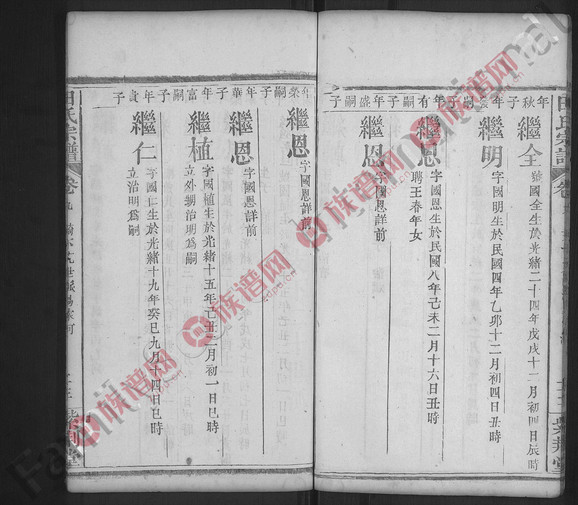 田氏宗譜
卷
年秋子
繼全
號國全生於光緒二十四年戊戌十一月初四日辰時
繼明
字國明生於民國四年乙卯十二月初四日丑時
年有嗣子
繼恩
字國恩生於民國八年己未二月十六日丑時
聘王春年女
年盛嗣子
繼恩
字國恩詳前
年榮嗣子
繼恩
字國恩詳前
年華嗣子
繼恩
字國恩詳前
年富嗣子
繼植
字國植生於光緒十五年己丑二月初一日巳時
立外甥治明為嗣
年貴子
繼仁
字國仁生於光緒十九年癸巳九月十四日巳時
立治明為嗣
田氏宗譜
卷九
紫荊堂
族谱网